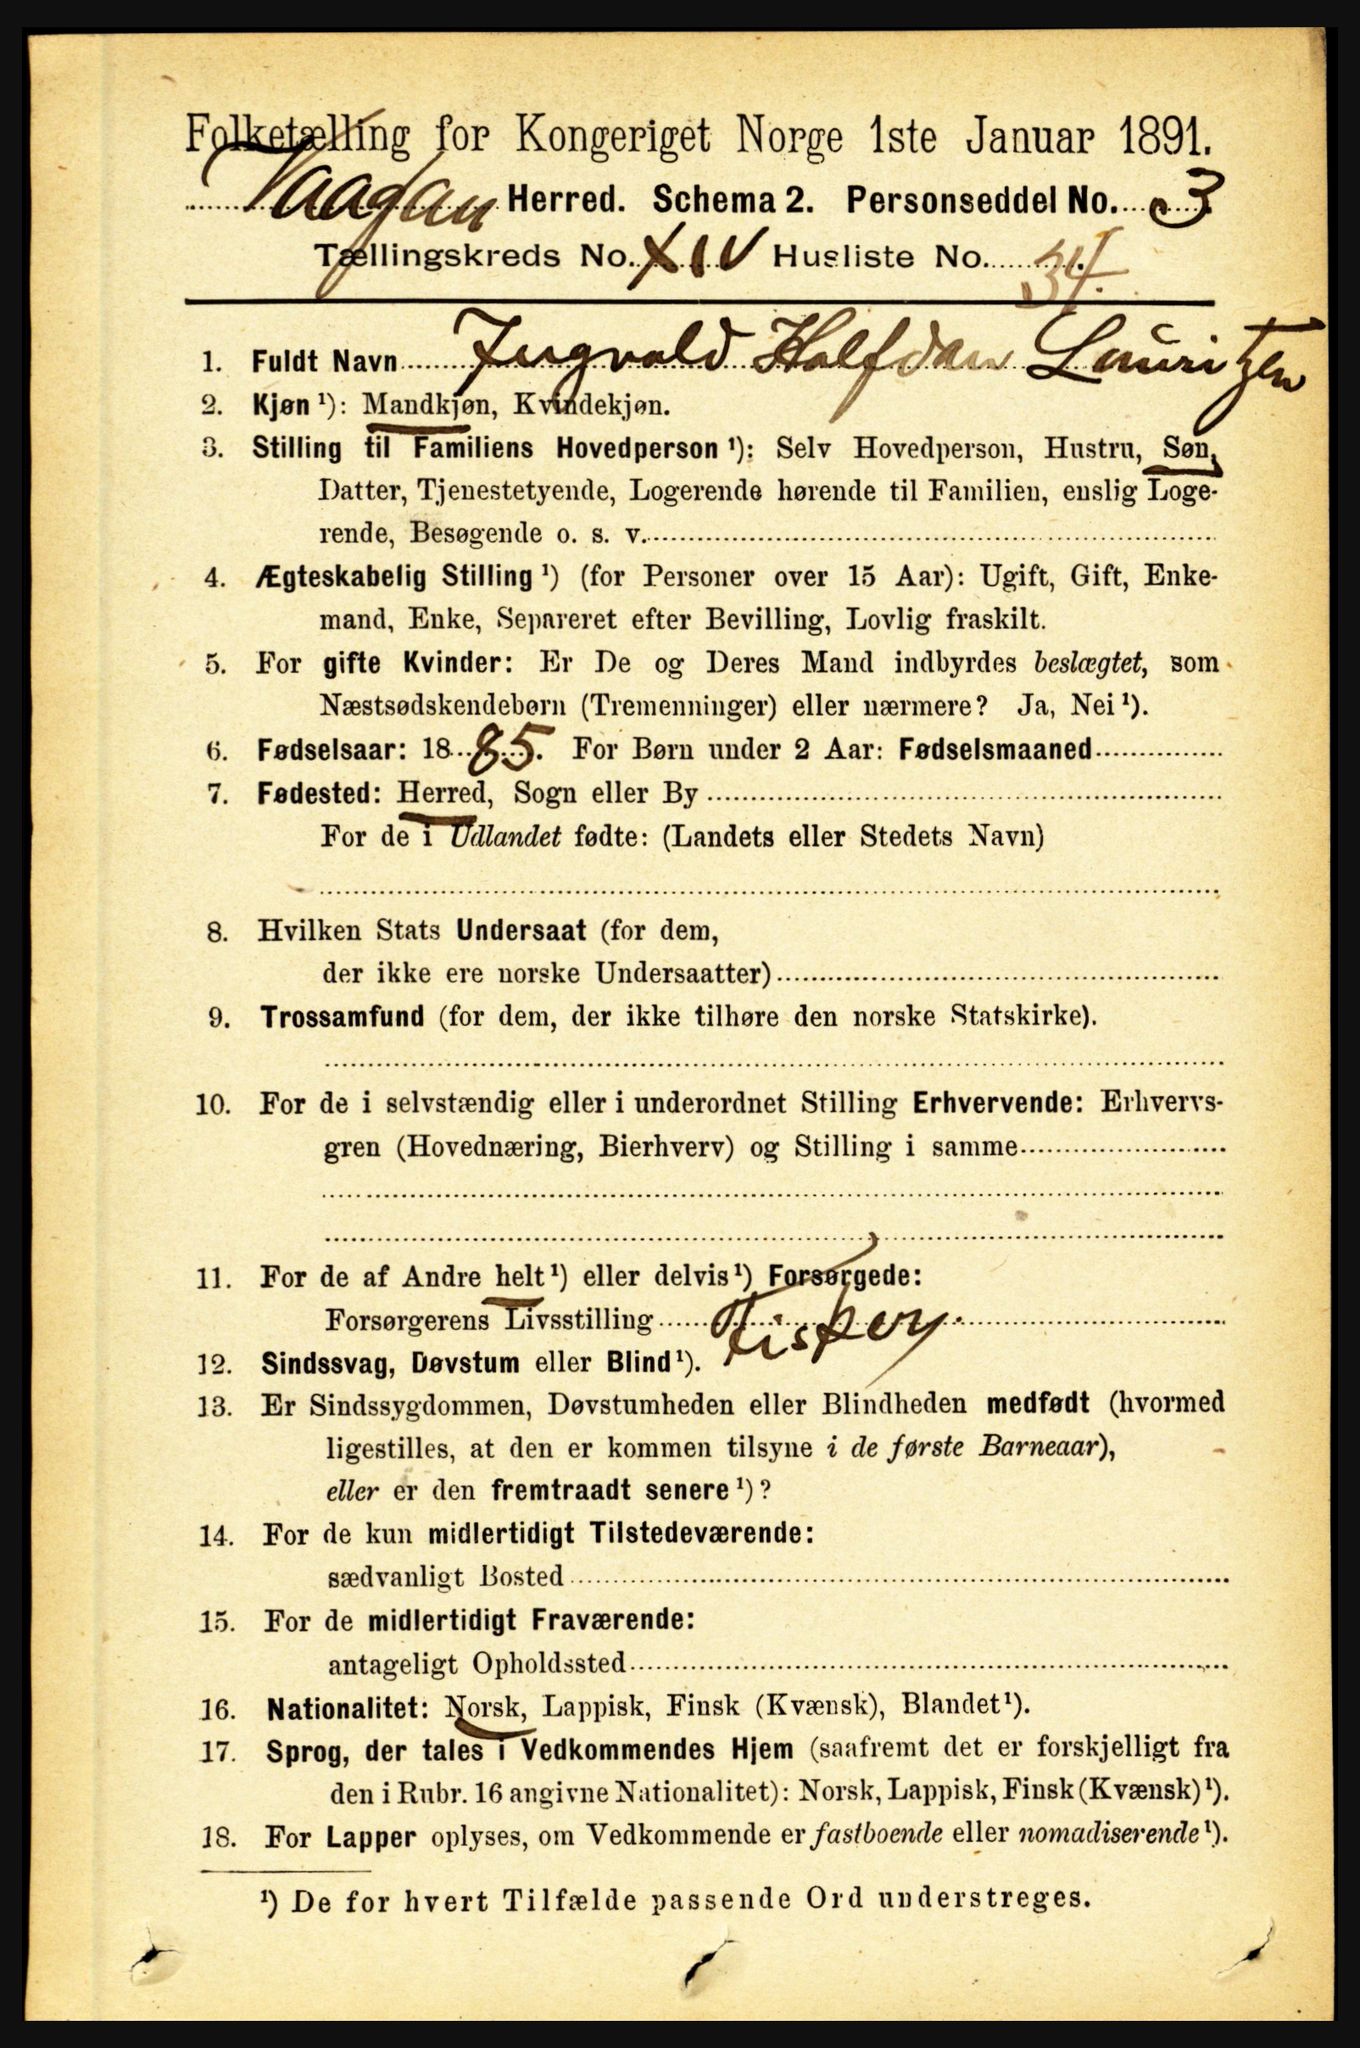 Folketælling for Kongeriget Norge 1ste Januar 1891.
Vaagan Herred. Schema 2. Personseddel No. 3
Tællingskreds No. XIV Husliste No. 34.
1. Fuldt Navn Ingvald Halfdan Lauritzen
2. Kjøn ¹): Mandkjøn, Kvindekjøn.
3. Stilling til Familiens Hovedperson ¹): Selv Hovedperson, Hustru, Søn,
Datter, Tjenestetyende, Logerende hørende til Familien, enslig Loge-
rende, Besøgende o. s. v.
4. Ægteskabelig Stilling ¹) (for Personer over 15 Aar): Ugift, Gift, Enke-
mand, Enke, Separeret efter Bevilling, Lovlig fraskilt.
5. For gifte Kvinder: Er De og Deres Mand indbyrdes beslægtet, som
Næstsødskendebørn (Tremenninger) eller nærmere? Ja, Nei ¹).
6. Fødselsaar: 1885. For Børn under 2 Aar: Fødselsmaaned
7. Fødested: Herred, Sogn eller By
For de i Udlandet fødte: (Landets eller Stedets Navn)
8. Hvilken Stats Undersaat (for dem,
der ikke ere norske Undersaatter)
9. Trossamfund (for dem, der ikke tilhøre den norske Statskirke).
10. For de i selvstændig eller i underordnet Stilling Erhvervende: Erhvervs-
gren (Hovednæring, Bierhverv) og Stilling i samme
11. For de af Andre helt ¹) eller delvis ¹) Forsørgede:
Forsørgerens Livsstilling Fisker.
12. Sindssvag, Døvstum eller Blind ¹).
13. Er Sindssygdommen, Døvstumheden eller Blindheden medfødt (hvormed
ligestilles, at den er kommen tilsyne i de første Barneaar),
eller er den fremtraadt senere ¹)?
14. For de kun midlertidigt Tilstedeværende:
sædvanligt Bosted
15. For de midlertidigt Fraværende:
antageligt Opholdssted
16. Nationalitet: Norsk, Lappisk, Finsk (Kvænsk), Blandet ¹).
17. Sprog, der tales i Vedkommendes Hjem (saafremt det er forskjelligt fra
den i Rubr. 16 angivne Nationalitet): Norsk, Lappisk, Finsk (Kvænsk) ¹).
18. For Lapper oplyses, om Vedkommende er fastboende eller nomadiserende ¹).
¹) De for hvert Tilfælde passende Ord understreges.